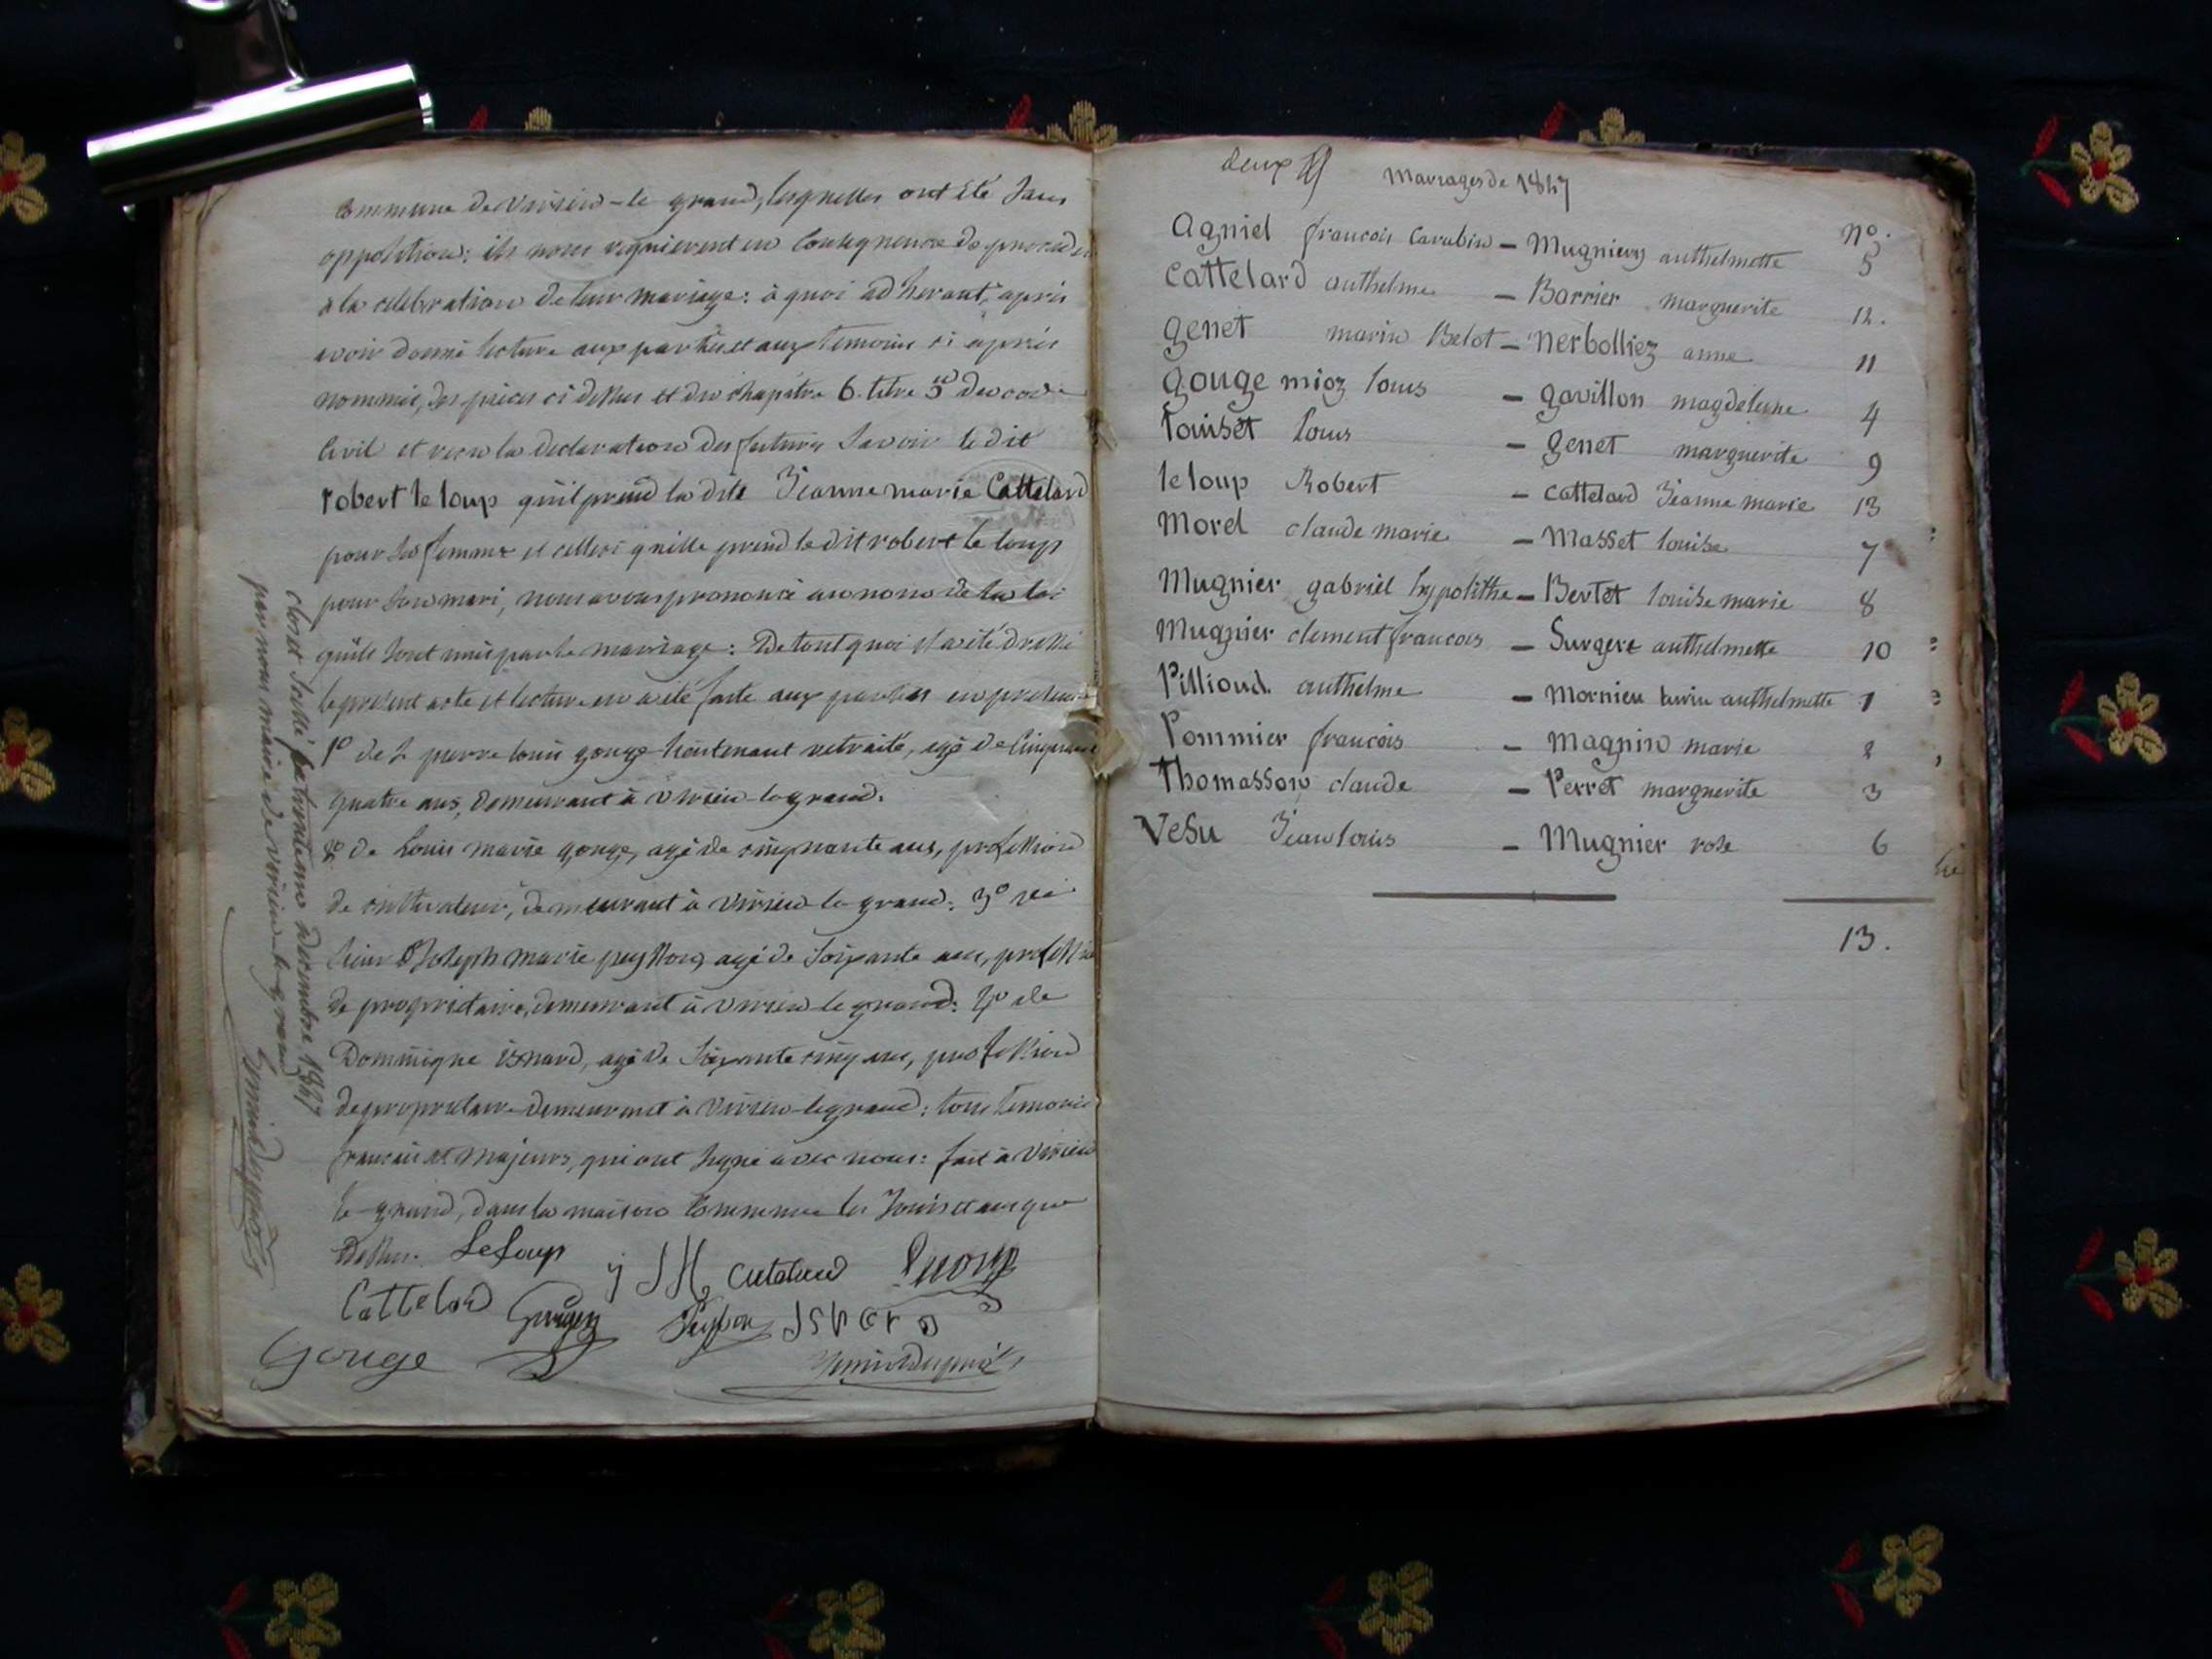 Commune de virieu-le grand, lesquelles ont été sans
opposition: ils nous requierent en Consequence de proceder
a la celebration de leur mariage: à quoi adherant, après
avoir donné lecture aux parties et aux temoins ci après
nommés, des pieces ci dessus et du chapitre 6. titre 5 du code
Civil et recu la declaration des futurs Savoir le dit
robert le loup qu'il prend la dite Jeanne marie Cattelard
pour sa femme et celleci qu'elle prend le dit robert le loup
pour son mari, nous avons prononcé au nom de la loi
qu'ils sont unis par le mariage: De tout quoi il a été dressé
le présent acte et lecture en a été faite aux parties en presence
1º de S pierre louis gouge lieutenant retraité, agé de Cinquante
quatre ans, demeurant à virieu le grand.
de Louis marie gouge, agé de cinquante ans, profession
de cultivateur, demeurant à virieu le grand: 3º de
sieur Joseph marie peysson, agé de soixante ans, profession
de proprietaire, demeurant à virieu le grand: 4º de
Dominique isnard, agé de soixante cinq ans, profession
de proprietaire demeurant à virieu legrand: tous temoins
francais et majeurs, qui ont signé avec nous: fait à virieu
le grand, dans la maison Commune les Jours et an que
Dessus. Leloup
J M Cutelard
Cattelard
Gouge
clos et
decembre 1847
par nous maire de virieu le grand
deux
Mariages de 1847
nº.
Agniel francois Carabin - Mugniery anthelmette 5
Cattelard anthelme - Barrier marguerite 12.
genet marin Belot - Nerbolliez anne 11
gouge mioz louis - gavillon magdeleine 4
Louis - genet marguerite 9
le loup Robert - cattelard Jeanne marie 13
Morel claude marie - Masset louise 7
Mugnier gabriel hypolithe - Bertet louise marie 8
Mugnier clement francois - Surgere anthelmette 10
Pillioud. anthelme - Mornieu anthelmette 1
Pommier francois - Magnin marie 2
Thomasson claude - Perret marguerite 3
Vesu Jean louis - Mugnier rose 6
13.